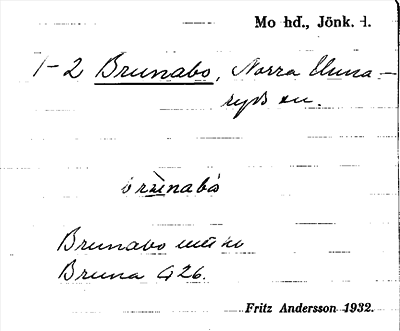 Mo hd., Jönk. l.
1-2 Brunabo, Norra Unna-
ryds sn.
brùnabó
Brunabo
Bruna 926.
Fritz Andersson 1932.